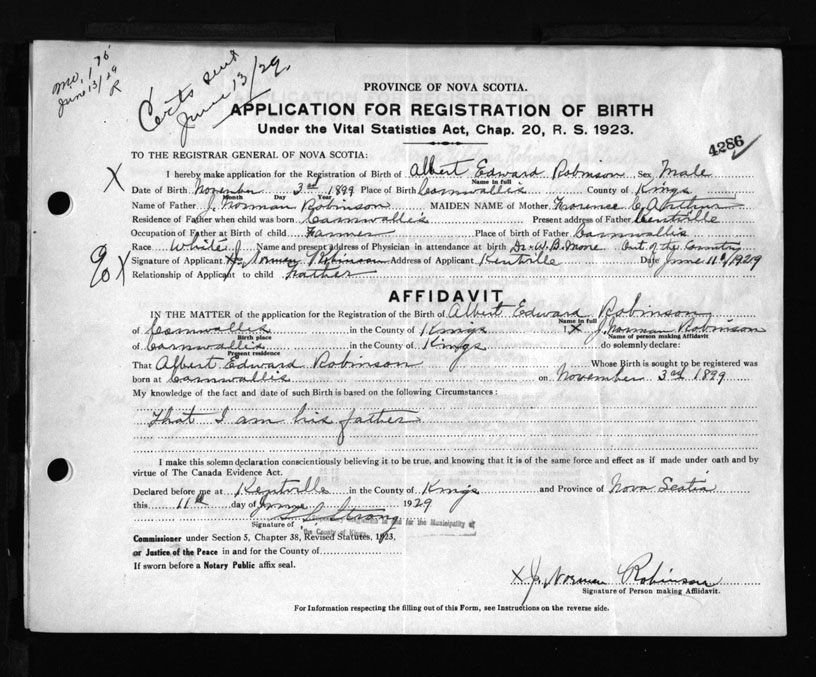 mo. 1.75
June 13/29
R
Certs sent
June 13/29.
PROVINCE OF NOVA SCOTIA.
APPLICATION FOR REGISTRATION OF BIRTH
Under the Vital Statistics Act, Chap. 20, R. S. 1923.
4286
TO THE REGISTRAR GENERAL OF NOVA SCOTIA:
X I hereby make application for the Registration of Birth of Albert Edward Robinson Sex Male
Name in full
Date of Birth November 3rd 1899 Place of Birth Cornwallis County of Kings
Month Day Year
Name of Father J. Norman Robinson MAIDEN NAME of Mother Florence C Arthur
Residence of Father when child was born Cornwallis Present address of Father Centville
Occupation of Father at Birth of child Farmer Place of birth of Father Cornwallis
Race White Name and present address of Physician in attendance at birth Dr. W. B. Moore Out of the Country
X Signature of Applicant J. Norman Robinson Address of Applicant Kentville Date June 11th/1929
Relationship of Applicant to child Father
AFFIDAVIT
IN THE MATTER of the application for the Registration of the Birth of Albert Edward Robinson
Name in full
of Cornwallis in the County of Kings I, X J. Norman Robinson
Birth place Name of person making Affidavit
of Cornwallis in the County of Kings do solemnly declare:
Present residence
That Albert Edward Robinson Whose Birth is sought to be registered was
born at Cornwallis on November 3rd 1899
My knowledge of the fact and date of such Birth is based on the following Circumstances:
That I am his father
I make this solemn declaration conscientiously believing it to be true, and knowing that it is of the same force and effect as if made under oath and by
virtue of The Canada Evidence Act.
Declared before me at Kentville in the County of Kings and Province of Nova Scotia
this 11th day of June 1929
Signature of Strong
in and for the Municipality of
the County of Kings
Commissioner under Section 5, Chapter 38, Revised Statutes, 1923,
or Justice of the Peace in and for the County of
If sworn before a Notary Public affix seal.
X J. Norman Robinson
Signature of Person making Affidavit.
For Information respecting the filling out of this Form, see Instructions on the reverse side.